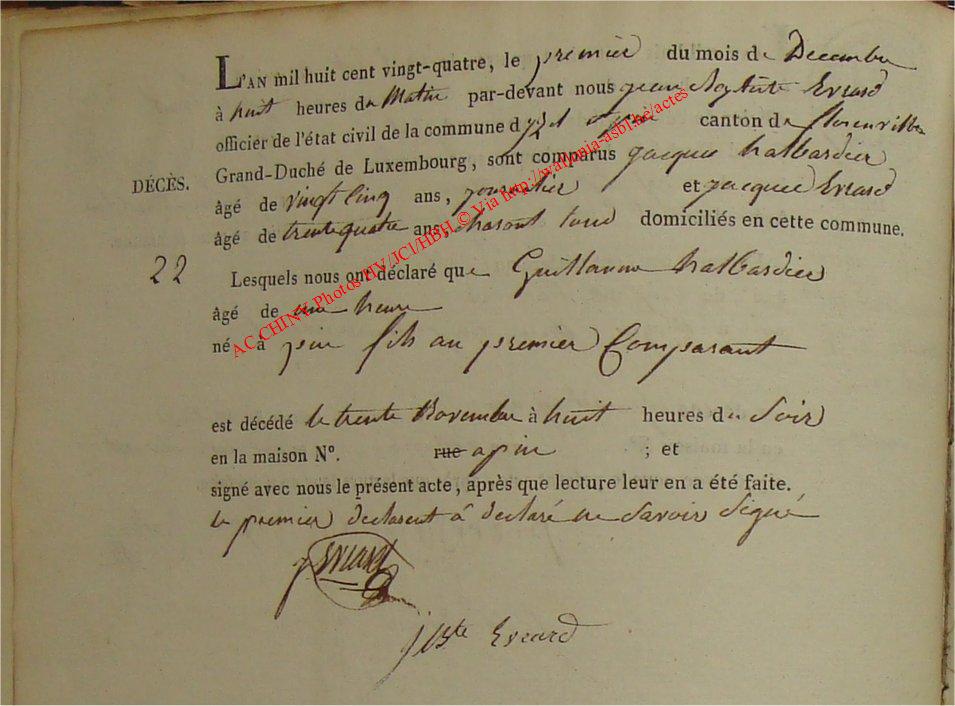 L'AN mil huit cent vingt-quatre, le premier du mois de Decembre
à huit heures du Matin par-devant nous jean Baptiste Evrard
officier de l'état civil de la commune d canton de florenville
Grand-Duché de Luxembourg, sont comparus jacques halbardier
DÉCÈS.
âgé de vingt Cinq ans, journalier et jacques Evrard
âgé de trente quatre ans, domiciliés en cette commune.
22
Lesquels nous ont déclaré que Guillaume halbardier
âgé de une heure
né à pin fils au premier Comparant
est décédé le trente Novembre à huit heures du Soir
en la maison N°. rue a pin ; et
signé avec nous le présent acte, après que lecture leur en a été faite.
le premier declarent à declaré ne Savoir Signé
j Evrard
j Bste Evrard
AC CHINY Photos HV/JCl/HBH. © Via http://wallonia-asbl.be/actes